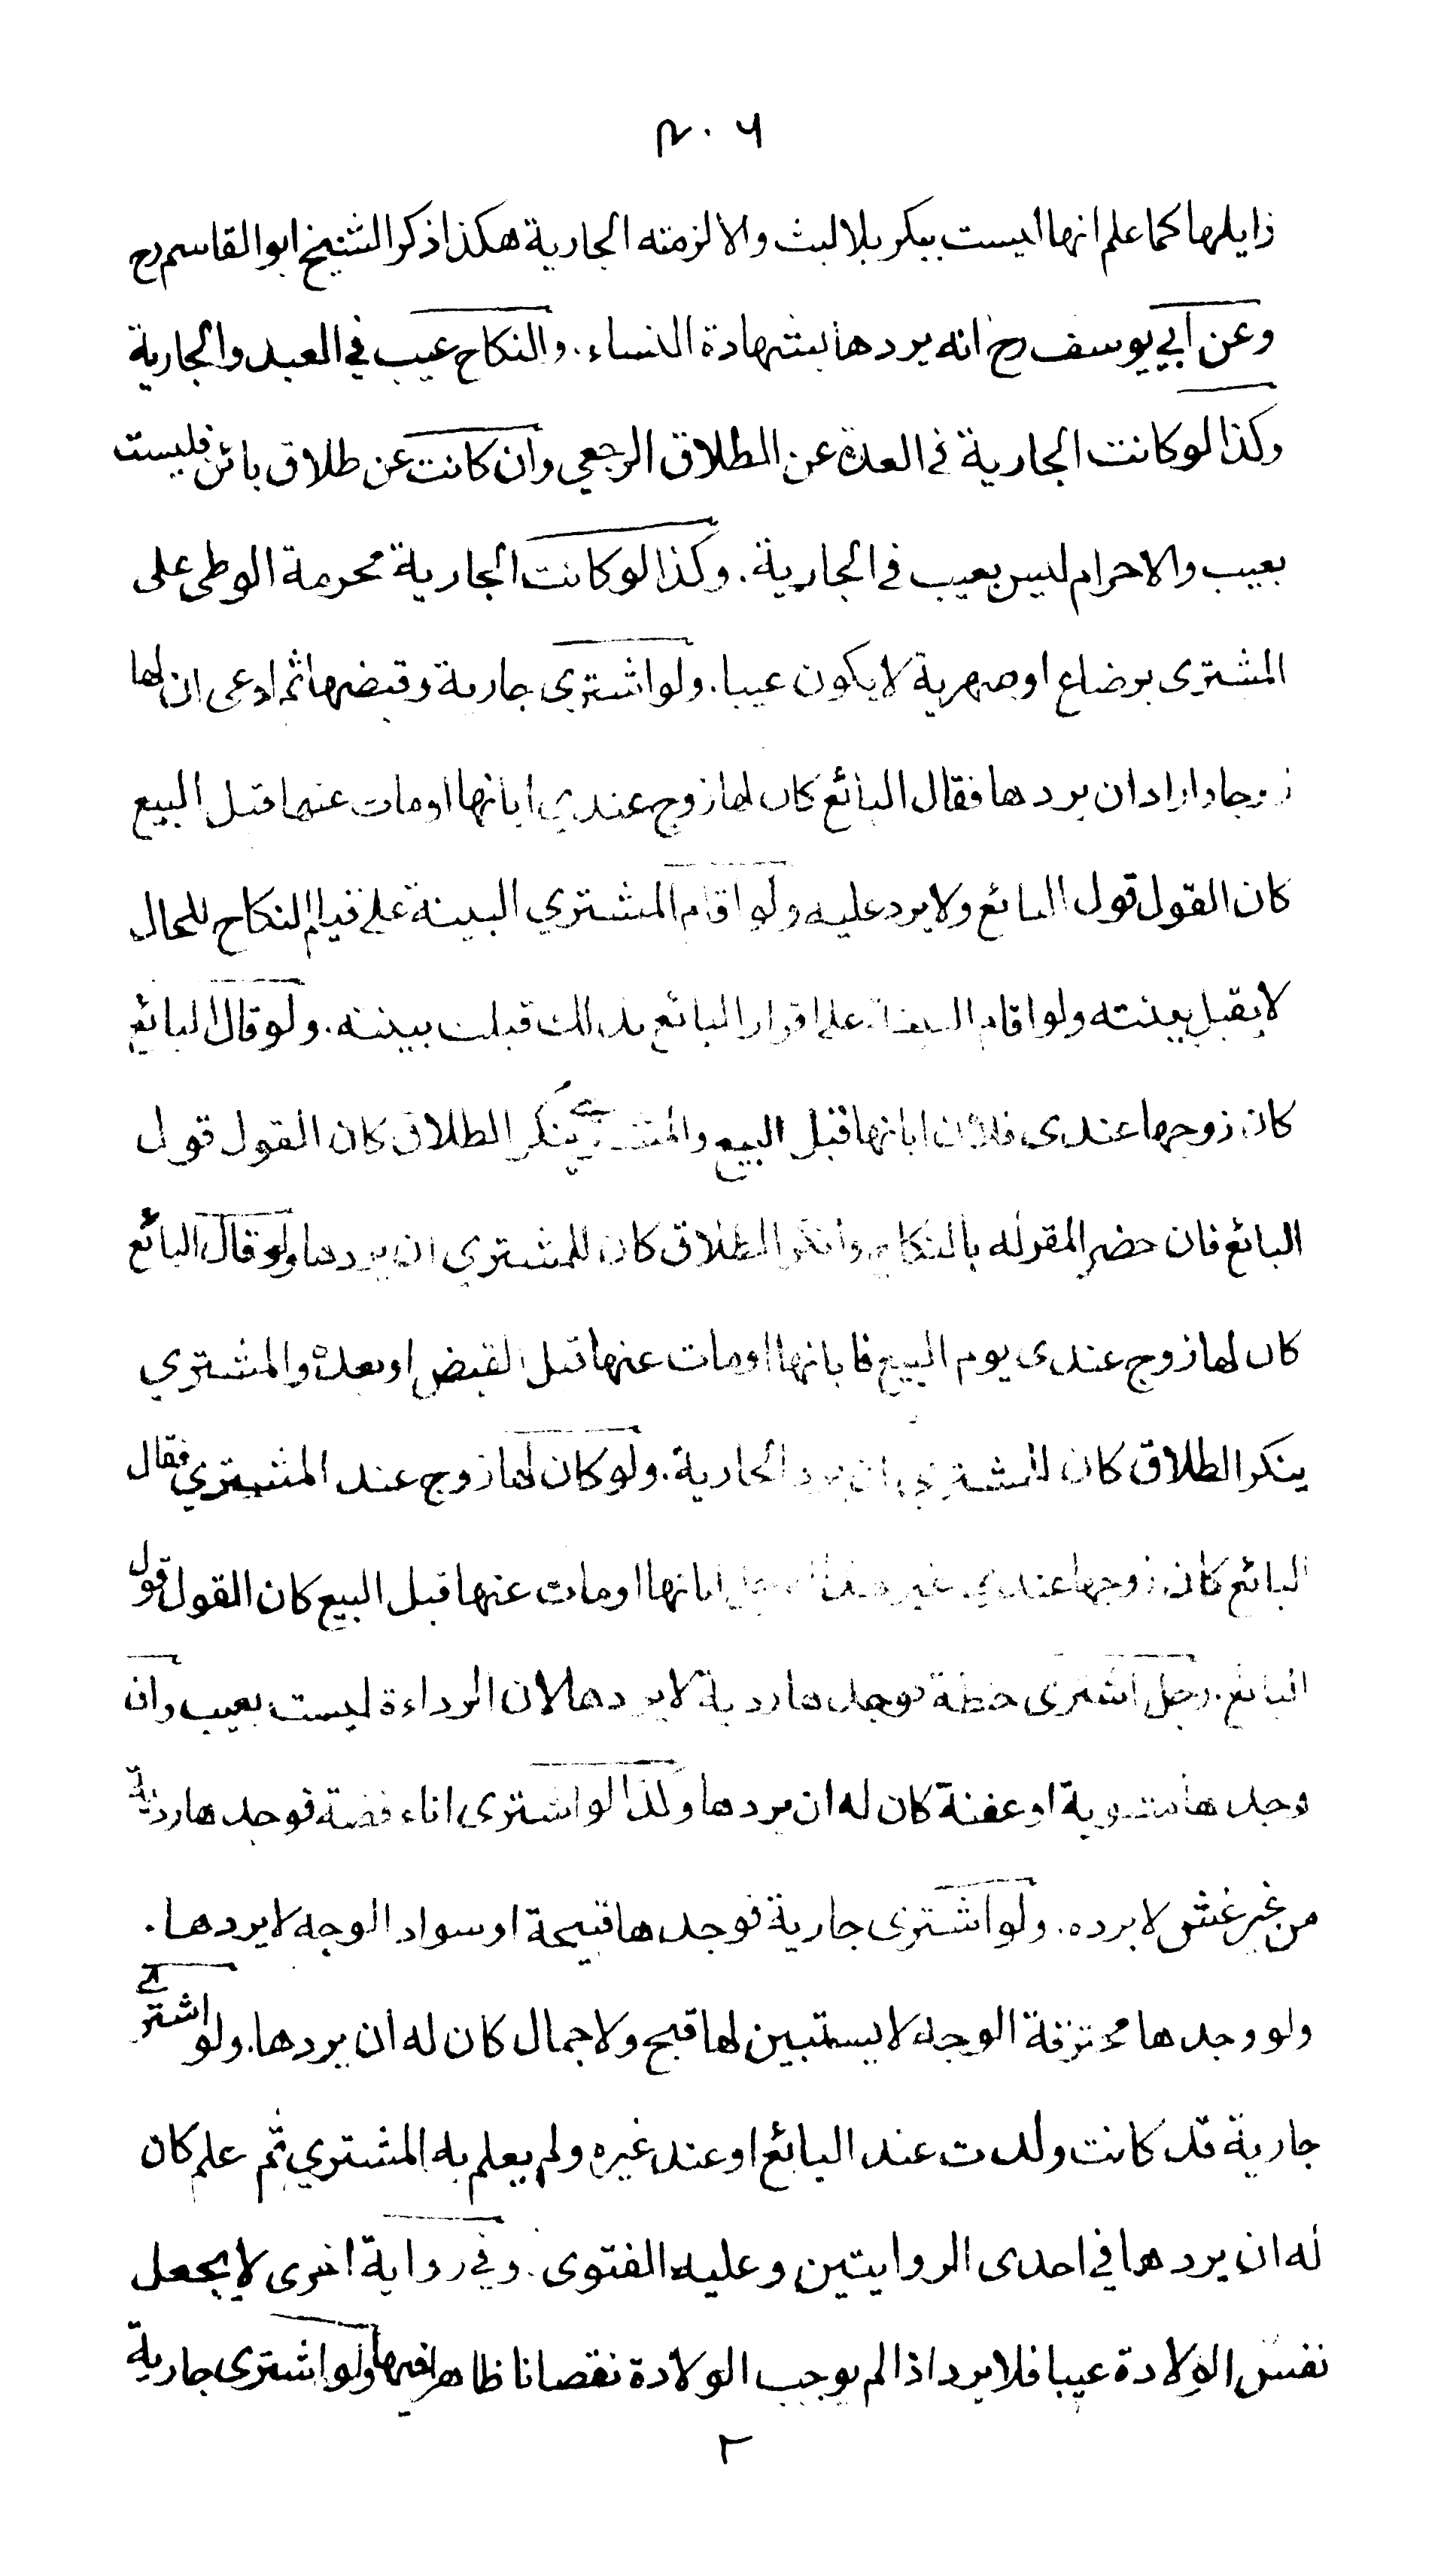 ٢٠٦
زايلها كما علم انها ليست ببكر بلا لبث والا لزمته الجارية هكذا ذكر الشيخ ابو القاسم رح
وعن ابي يوسف رح انه يردها بشهادة النساء. والنكاح عيب في العبد والجارية
وكذا لو كانت الجارية في العدة عن الطلاق الرجعي وان كانت عن طلاق بائن فليست
بعيب والاحرام ليس بعيب في الجارية. وكذا لو كانت الجارية محرمة الوطى على
المشترى برضاع او صهرية لا يكون عيبا. ولو اشترى جارية وقبضها ثم ادعى ان لها
زوجا واراد ان يردها فقال البائع كان لها زوج عندي ابانها او مات عنها قبل البيع
كان القول قول البائع ولا يرد عليه ولو اقام المشتري البينة على قيام النكاح للحال
لا يقبل بينته ولو اقام البينة على اقرار البائع بذلك قبلت بينته. ولو قال البائع
كان زوجها عندى فلان ابانها قبل البيع والمشتري ينكر الطلاق كان القول قول
البائع فان حضر المقر له بالنكاح وانكر الطلاق كان للمشتري ان يردها ولو قال البائع
كان لها زوج عندى يوم البيع فابانها او مات عنها قبل القبض او بعده والمشتري
ينكر الطلاق كان للمشتري ان يرد الجارية. ولو كان لها زوج عند المشتري فقال
البائع كان زوجها عندي غير هذا الرجل ابانها او مات عنها قبل البيع كان القول قول
البائع. رجل اشترى حنطة فوجدها ردية لا يردها لان الرداءة ليست بعيب وان
وجدها مسوسة او عفنة كان له ان يردها وكذا لو اشترى اناء فضة فوجدها ردية
من غير غش لا يرده. ولو اشترى جارية فوجدها قبيحة او سواد الوجه لا يردها.
ولو وجدها محترقة الوجه لا يستبين لها قبح ولا جمال كان له ان يردها. ولو اشترى
جارية قد كانت ولدت عند البائع او عند غيره ولم يعلم به المشتري ثم علم كان
له ان يردها في احدى الروايتين وعليه الفتوى. وفي رواية اخرى لا يجعل
نفس الولادة عيبا فلا يرد اذا لم يوجب الولادة نقصانا ظاهرا فيها ولو اشترى جارية
٢